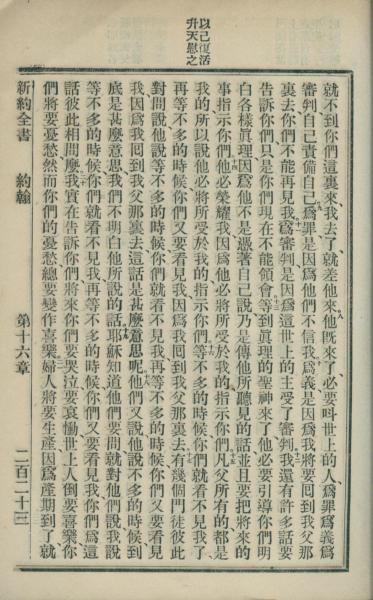 以己復活
升天慰之
就不到你們這裏來、我去了、就差他來、他旣來了、必要叫世上的人、爲罪爲義爲
審判、自己責備自己、爲罪是因爲他們不信我、爲義是因爲我將要囘到我父那
裏去、你們不能再見我、爲審判是因爲這世上的主受了審判、我還有許多話要
告訴你們、只是你們現在不能領會、等到眞理的聖神來了、他必要引導你們明
白各樣眞理、因爲他不是憑著自己說、乃是傳他所聽見的話、並且要把將來的
事指示你們、他必榮耀我、因爲他必將所受於我的指示你們、凡父所有的都是
我的、所以說他必將所受於我的指示你們、等不多的時候、你們就看不見我了、
再等不多的時候、你們又要看見我、因爲我囘到我父那裏去、有幾個門徒彼此
對問說、他說等不多的時候、你們就看不見我、再等不多的時候、你們又要看見
我、因我囘到我父那裏去、這話是甚麼意思呢、他們又說、他說不多的時候到
底是甚麼意思、我們不明白他所說的話、耶穌知道他們要問、就對他們說、我說
等不多的時候、你們就看不見我、再等不多的時候、你們又要看見我、你們爲這
話彼此相問麼、我實在告訴你們、將來你們要哭泣、要哀慟、世上人倒要喜樂、你
們將要憂愁、然而你們的憂愁總要變作喜樂、婦人將要生產、因爲產期到了、就
新約全書 約翰 第十六章 二百二十三